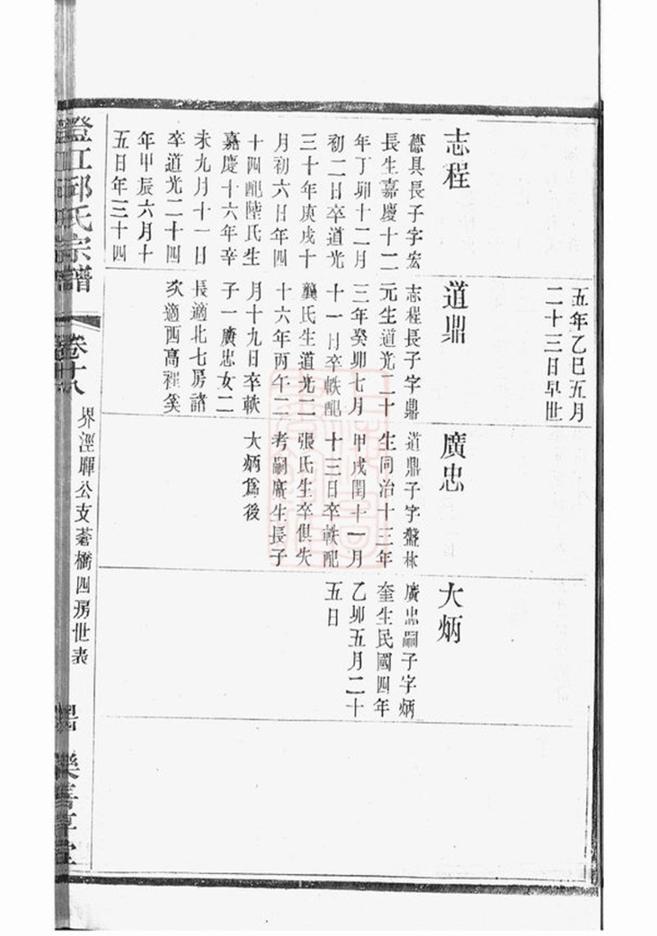 五年乙巳五月
二十三日早世
志程
德具長子字宏
長生嘉慶十二
年丁卯十二月
初二日卒道光
三十年庚戌十
月初六日年四
十四配陸氏生
嘉慶十六年辛
未九月十一日
卒道光二十四
年甲辰六月十
五日年三十四
道鼎
志程長子字鼎
元生道光二十
三年癸卯七月
十一月卒軼配
龔氏生道光二
十六年丙午二
月十九日卒軼
子一廣忠女二
長適北七房諸
次適西高程奚
廣忠
道鼎子字盤林
生同治十三年
甲戌閏十一月
十三日卒軼配
張氏生卒俱失
考嗣廣生長子
大炳爲後
大炳
廣忠嗣子字炳
奎生民國四年
乙卯五月二十
五日
澄江邱氏宗譜
卷十八
界涇 公支 橋四房世表
樂善草堂